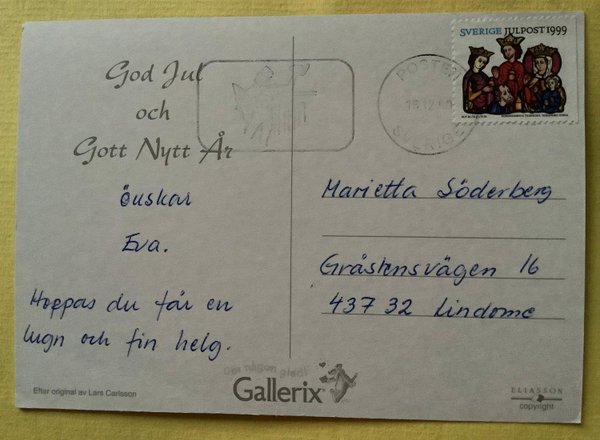 God Jul
och
Gott Nytt År
önskar
Eva.
Hoppas du får en
lugn och fin helg.
Efter original av Lars Carlsson
SVERIGE JULPOST 1999
POSTEN
SVERIGE
Marietta Söderberg
Gråstensvägen 16
437 32 Lindome
Gör någon glad!
Gallerix
ELIASSON
copyright